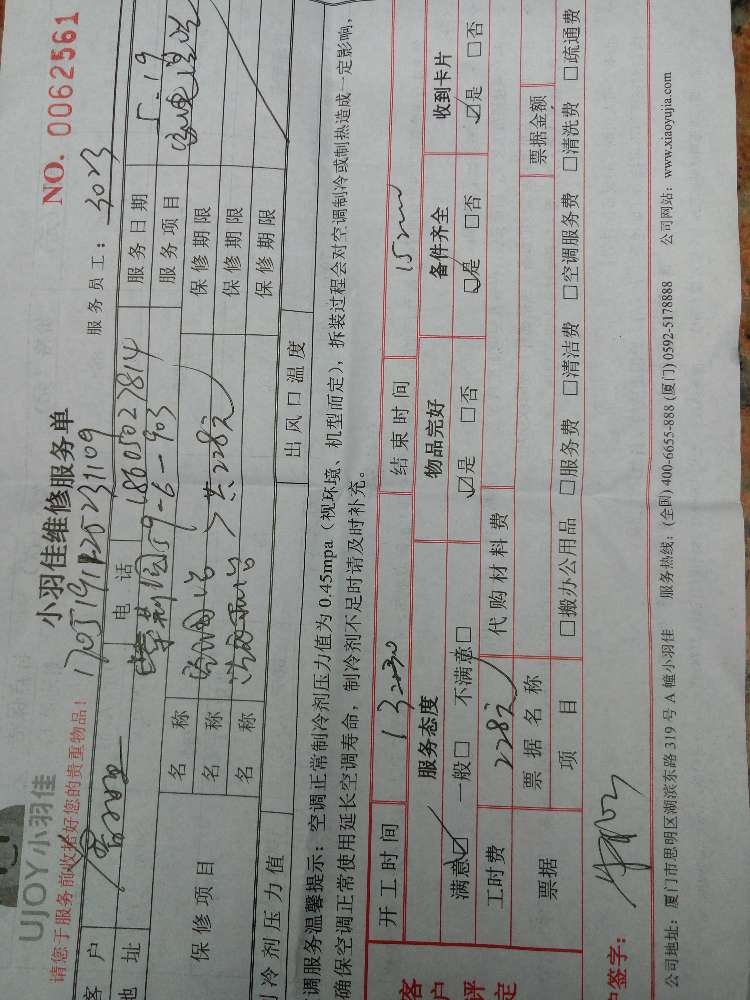 UJOY小羽佳
小羽佳维修服务单
NO. 0062561
请您于服务前收拾好您的贵重物品!
服务员工: 3023
客 户
电 话 18605027814 服务日期 5.19
地 址
9-6-903 服务项目
保修项目
名 称 保修期限
名 称 共228元 保修期限
名 称 保修期限
冷剂压力值 出风口温度
调服务温馨提示:空调正常制冷剂压力值为0.45mpa(视环境、机型而定),拆装过程会对空调制冷或制热造成一定影响,
确保空调正常使用延长空调寿命,制冷剂不足时请及时补充。
开工时间 结束时间
客户评定
服务态度 物品完好 备件齐全 收到卡片
满意☑ 一般□ 不满意□ ☑是 □否 ☑是 □否 ☑是 □否
工时费 228元 代购材料费
票据 票据名称 票据金额
项 目 □搬办公用品 □服务费 □清洁费 □空调服务费 □清洗费 □疏通费
户签字:
公司地址:厦门市思明区湖滨东路319号A幢小羽佳 服务热线:(全国)400-6655-888 (厦门)0592-5178888 公司网站:www.xiaoyujia.com